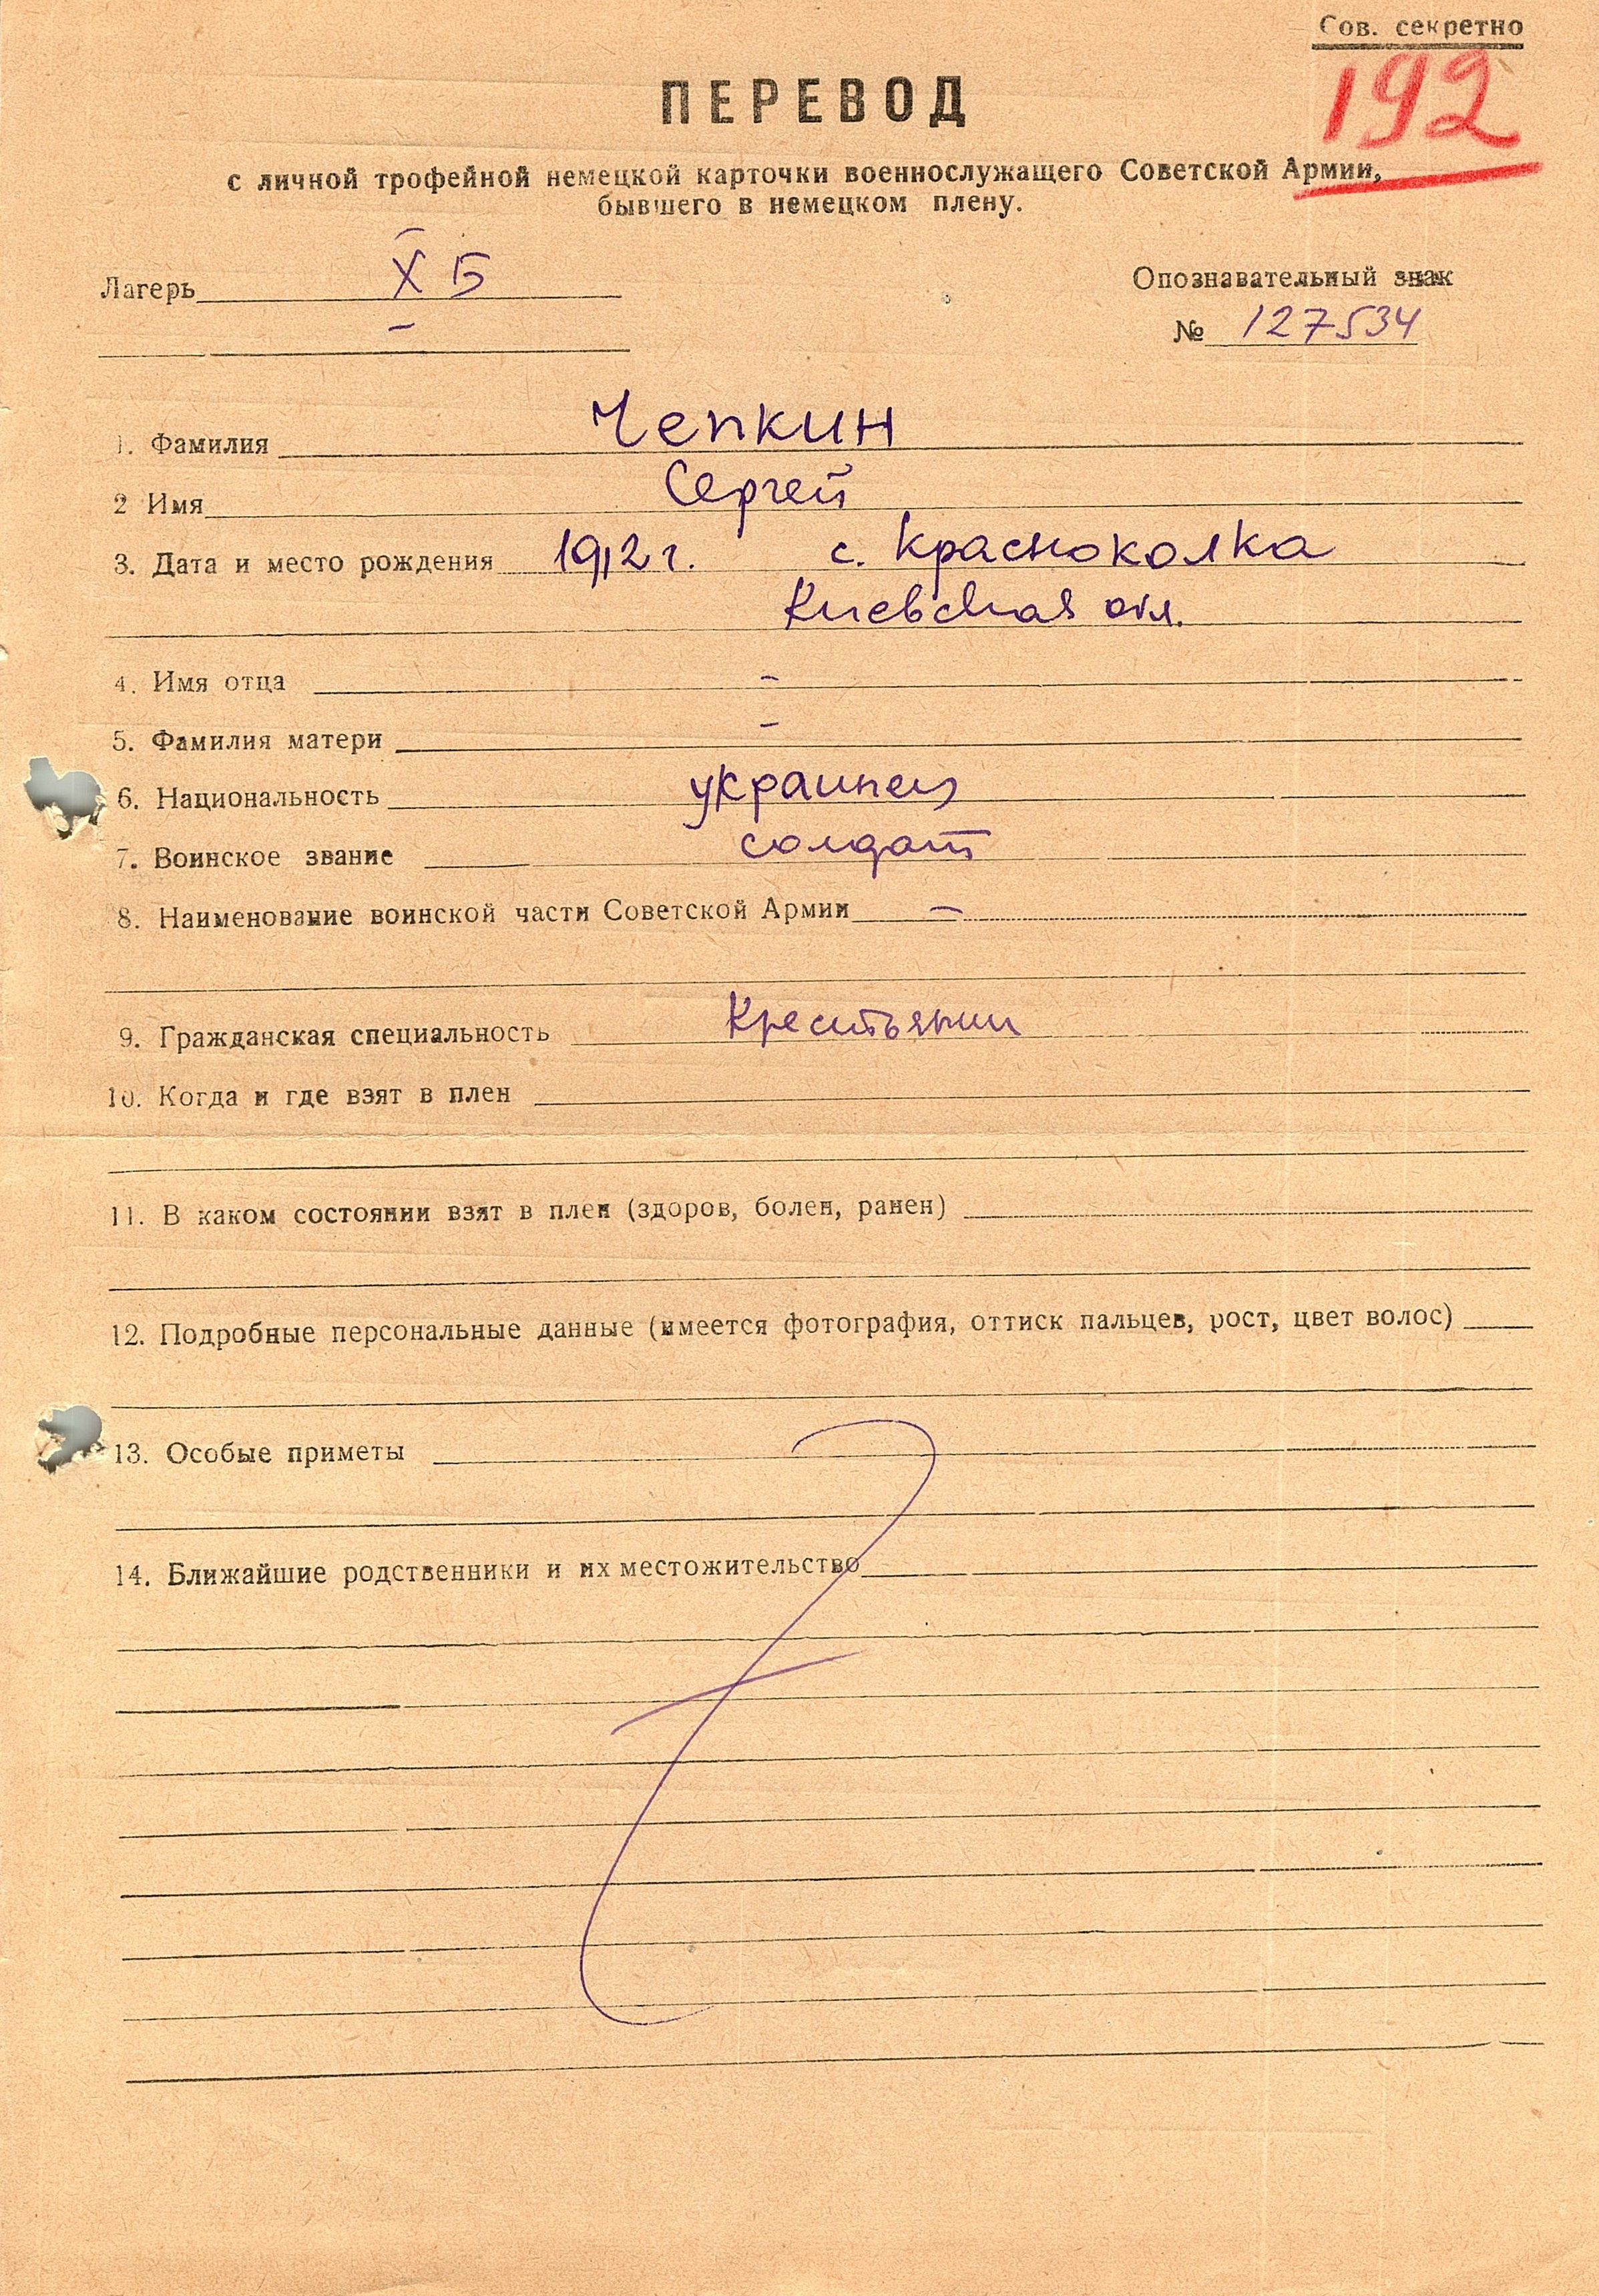 Сов. секретно
192
ПЕРЕВОД
с личной трофейной немецкой карточки военнослужащего Советской Армии,
бывшего в немецком плену.
Лагерь X Б
Опознавательный знак
№ 127534
1. Фамилия Чепкин
2 Имя Сергей
3. Дата и место рождения 1912 г. с. Красноколка
Киевская обл.
4. Имя отца -
5. Фамилия матери -
6. Национальность украинец
7. Воинское звание солдат
8. Наименование воинской части Советской Армии -
9. Гражданская специальность Крестьянин
10. Когда и где взят в плен
11. В каком состоянии взят в плен (здоров, болен, ранен)
12. Подробные персональные данные (имеется фотография, оттиск пальцев, рост, цвет волос)
13. Особые приметы
14. Ближайшие родственники и их местожительство